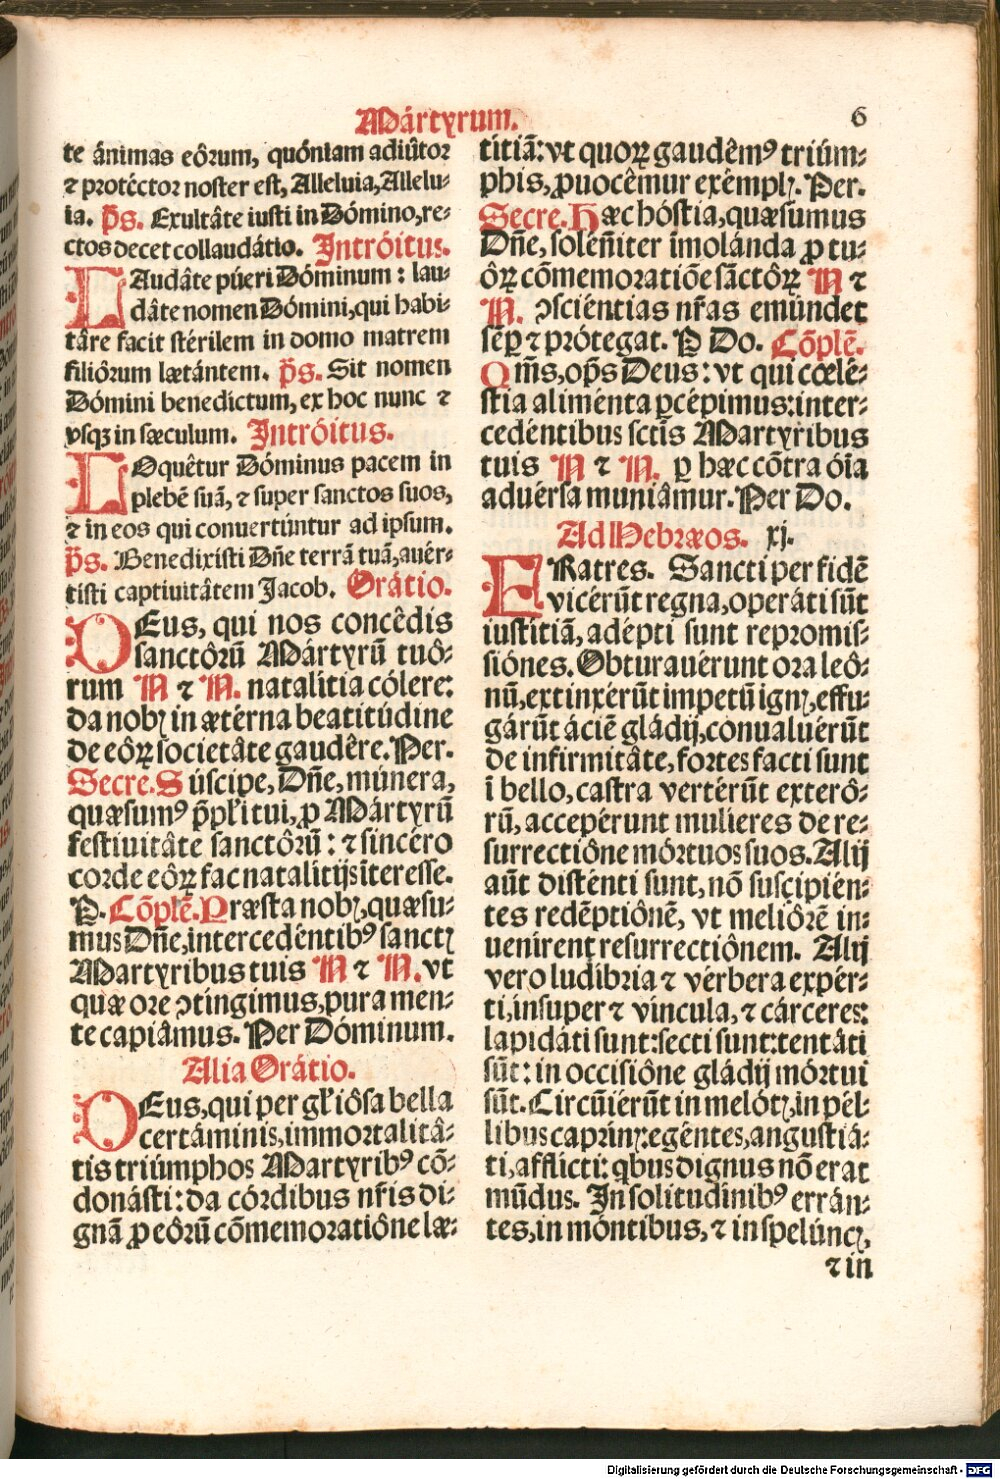 Mártyrum. 6
te ánimas eôrum, quóniam adiûtor
⁊ protéctor noster est, Alleluia, Allelu-
ia. p̃s. Exultâte iusti in Dómino, re-
ctos decet collaudátio. Intróitus.
LAudâte púeri Dóminum : lau-
dâte nomen Dómini, qui habi-
târe facit stérilem in domo matrem
filiôrum lætántem. p̃s. Sit nomen
Dómini benedictum, ex hoc nunc ⁊
vsqꝫ in sæculum. Intróitus.
LOquêtur Dóminus pacem in
plebẽ suã, ⁊ super sanctos suos,
⁊ in eos qui conuertúntur ad ipsum.
p̃s. Benedixísti Dñe terrã tuã, auér-
tisti captiuitâtem Jacob. Orátio.
DEus, qui nos concêdis
sanctôrũ Mártyrũ tuô-
rum N ⁊ N. natalitia cólere:
da nobꝭ in ætérna beatitúdine
de eôꝝ societâte gaudêre. Per.
Secre. Súscipe, Dñe, múnera,
quæsumꝰ p̃pl̃i tui, ꝓ Mártyrũ
festiuitâte sanctôrũ : ⁊ sincéro
corde eôꝝ fac natalitijs ĩteresse.
P. Cõplẽ. Præsta nobꝭ, quæsu-
mus Dñe, intercedéntibꝰ sanctꝭ
Martyribus tuis N ⁊ N. vt
quæ ore ꝯtingimus, pura men-
te capiâmus. Per Dóminum.
Alia Orátio.
DEus, qui per gl̃iôsa bella
certáminis, immortalitâ-
tis triúmphos Martyribꝰ cõ-
donásti : da córdibus nr̃is di-
gnã ꝓ eôrũ cõmemoratiône læ-
titiã: vt quoꝝ gaudêmꝰ triúm-
phis, ꝓuocêmur exémplꝭ. Per.
Secre. Hæc hóstia, quæsumus
Dñe, solẽñiter ĩmolánda ꝓ tu-
ôꝝ cõmemoratiõe sãctôꝝ N ⁊
N. ꝯsciéntias nr̃as emúndet
sẽꝑ ⁊ prótegat. P Do. Cõplẽ.
Om̃s, op̃s Deus : vt qui cœlé-
stia aliménta ꝑcépimus: inter-
cedéntibus sct̃is Martyribus
tuis N ⁊ N. ꝑ hæc cõtra óĩa
aduérsa muniâmur. Per Do.
Ad Hebræos. xj.
FRatres. Sancti per fidẽ
vicérũt regna, operáti sũt
iustítiã, adépti sunt repromis-
siónes. Obturauérunt ora leô-
nũ, extinxérũt ímpetũ ignꝭ, effu-
gárũt áciẽ gládij, conualuérũt
de infirmitâte, fortes facti sunt
ĩ bello, castra vertérũt exterô-
rũ, accepérunt mulieres de re-
surrectiône mórtuos suos. Alij
aũt disténti sunt, nõ suscipién-
tes redẽptiônẽ, vt meliôrẽ in-
uenírent resurrectiônem. Alij
vero ludíbria ⁊ vérbera expér-
ti, ínsuper ⁊ víncula, ⁊ cárceres:
lapidáti sunt: secti sunt: tentâti
sũt : in occisiône gládij mórtui
sũt. Circũiérũt in melótꝭ, in pél-
libus caprinꝭ: egéntes, angustiá-
ti, afflícti: qbus dignus nõ erat
mũdus. In solitudínibꝰ errán-
tes, in móntibus, ⁊ in spelúncꝭ,
⁊ in
Digitalisierung gefördert durch die Deutsche Forschungsgemeinschaft - DFG